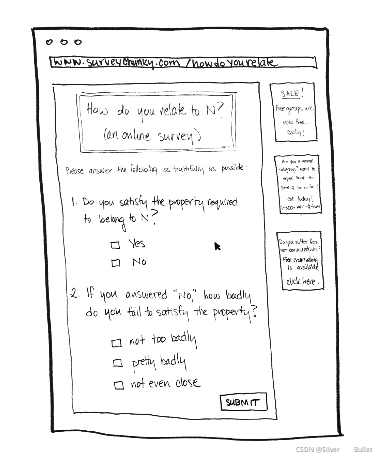 www.surveychunky.com/howdoyourelate
How do you relate to N?
(an online survey)
Please answer the following as truthfully as possible:
1. Do you satisfy the property required
to belong to N?
Yes
No
2. If you answered "No," how badly
do you fail to satisfy the property?
not too badly
pretty badly
not even close
SUBMIT
SALE!
Free groups are
now free.
Really!
Are you a normal
subgroup? Want to
call today!
Do you suffer from
noncommutativity?
Free
is available
click here.
CSDN @Silver Bullet